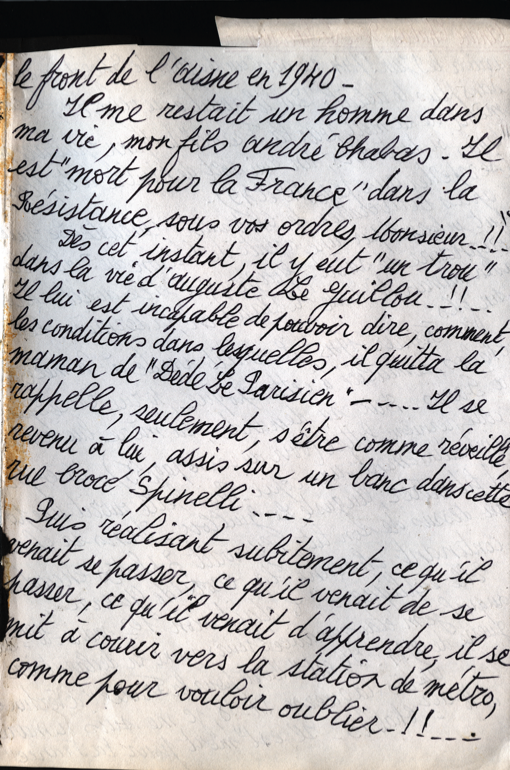 le front de l'Aisne en 1940 -
Il me restait un homme dans
ma vie, mon fils André Chabas - Il
est "mort pour la France" dans la
Résistance, sous vos ordres, Monsieur..!!"
Dès cet instant, il y eut "un trou"
dans la vie d'Auguste Le Guillou..!!...
Il lui est incapable de pouvoir dire, comment,
les conditions dans lesquelles, il quitta la
maman de "Dédé Le Parisien" - .... Il se
rappelle, seulement, s'être comme réveillé,
revenu à lui, assis sur un banc dans cette
rue Crocé Spinelli ....
Puis réalisant subitement, ce qu'il
venait se passer, ce qu'il venait de se
passer, ce qu'il venait d'apprendre, il se
mit à courir vers la station de métro,
comme pour vouloir oublier..!!....